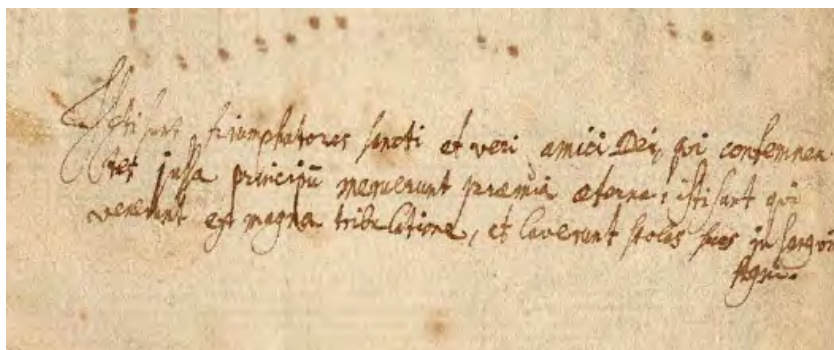 Isti sunt triumphatores sancti et veri amici Dei, qui contemnen-
tes jussa principũ meruerunt præmia æterna: isti sunt qui
venerunt ex magna tribulatione, et laverunt stolas suas in sangvi
Agni.